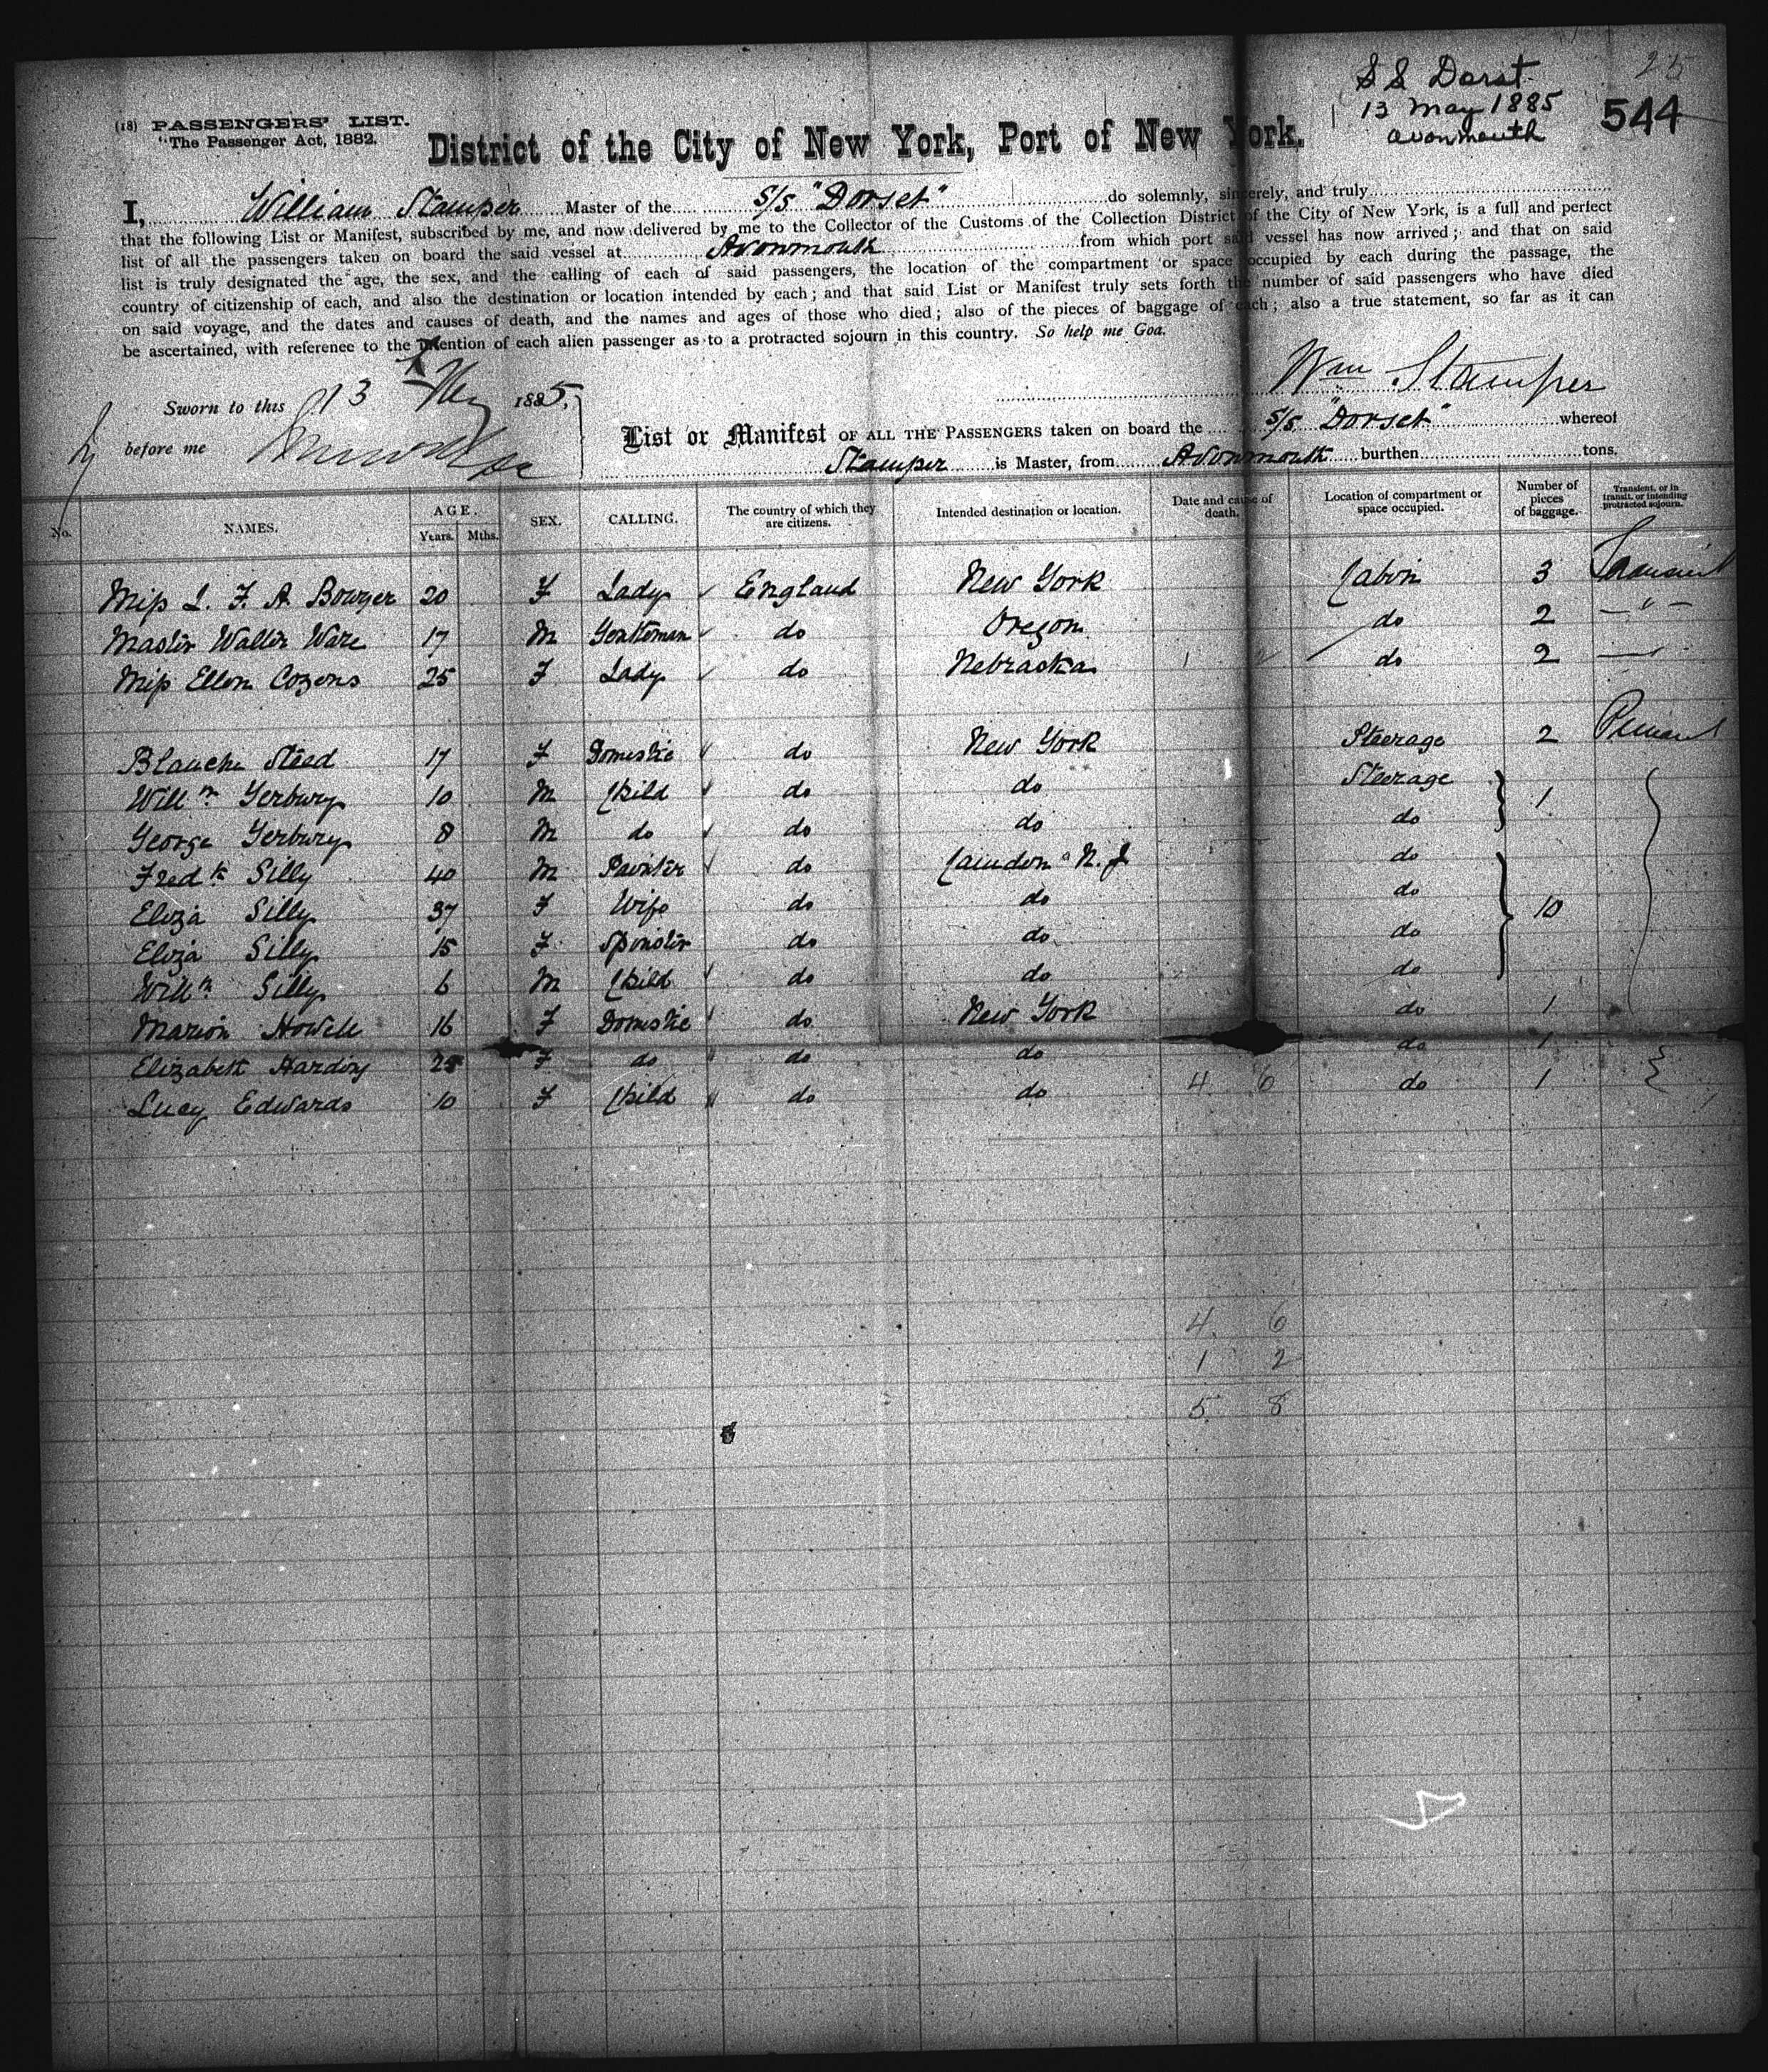 S S Dorst 25
13 May 1885 544
avonmouth
(18) PASSENGERS' LIST.
"The Passenger Act, 1882.
District of the City of New York, Port of New York.
I, William Stamper Master of the S/S "Dorset" do solemnly, sincerely, and truly
that the following List or Manifest, subscribed by me, and now delivered by me to the Collector of the Customs of the Collection District of the City of New York, is a full and perfect
list of all the passengers taken on board the said vessel at Avonmouth from which port said vessel has now arrived; and that on said
list is truly designated the age, the sex, and the calling of each of said passengers, the location of the compartment or space occupied by each during the passage, the
country of citizenship of each, and also the destination or location intended by each; and that said List or Manifest truly sets forth the number of said passengers who have died
on said voyage, and the dates and causes of death, and the names and ages of those who died; also of the pieces of baggage of each; also a true statement, so far as it can
be ascertained, with reference to the intention of each alien passenger as to a protracted sojourn in this country. So help me God.
Wm Stamper
Sworn to this 13 May 1885,
before me
List or Manifest OF ALL THE PASSENGERS taken on board the S/S "Dorset" whereof
Stamper is Master, from Avonmouth burthen tons.
No. NAMES. AGE. Years. Mths. SEX. CALLING. The country of which they are citizens. Intended destination or location. Date and cause of death. Location of compartment or space occupied. Number of pieces of baggage. Transient, or in transit, or intending protracted sojourn.
Miss L. F. A. Bowyer 20 F Lady England New York Cabin 3 Transient
Master Walter Ware 17 M Gentleman do Oregon do 2 — " —
Miss Ellen Cozens 25 F Lady do Nebraska 1 2 do 2 —
Blanche Steed 17 F Domestic do New York Steerage 2
Willm Yerbury 10 M Child do do Steerage 1
George Yerbury 8 M do do do do
Fredk Silly 40 M Painter do Camden N. J do
Eliza Silly 37 F Wife do do do 10
Eliza Silly 15 F Spinster do do do
Willm Silly 6 M Child do do do
Marion Howell 16 F Domestic do New York do 1
Elizabeth Harding 25 F do do do do 1
Lucy Edwards 10 F Child do do 4 6 do 1
4 6
1 2
5 8